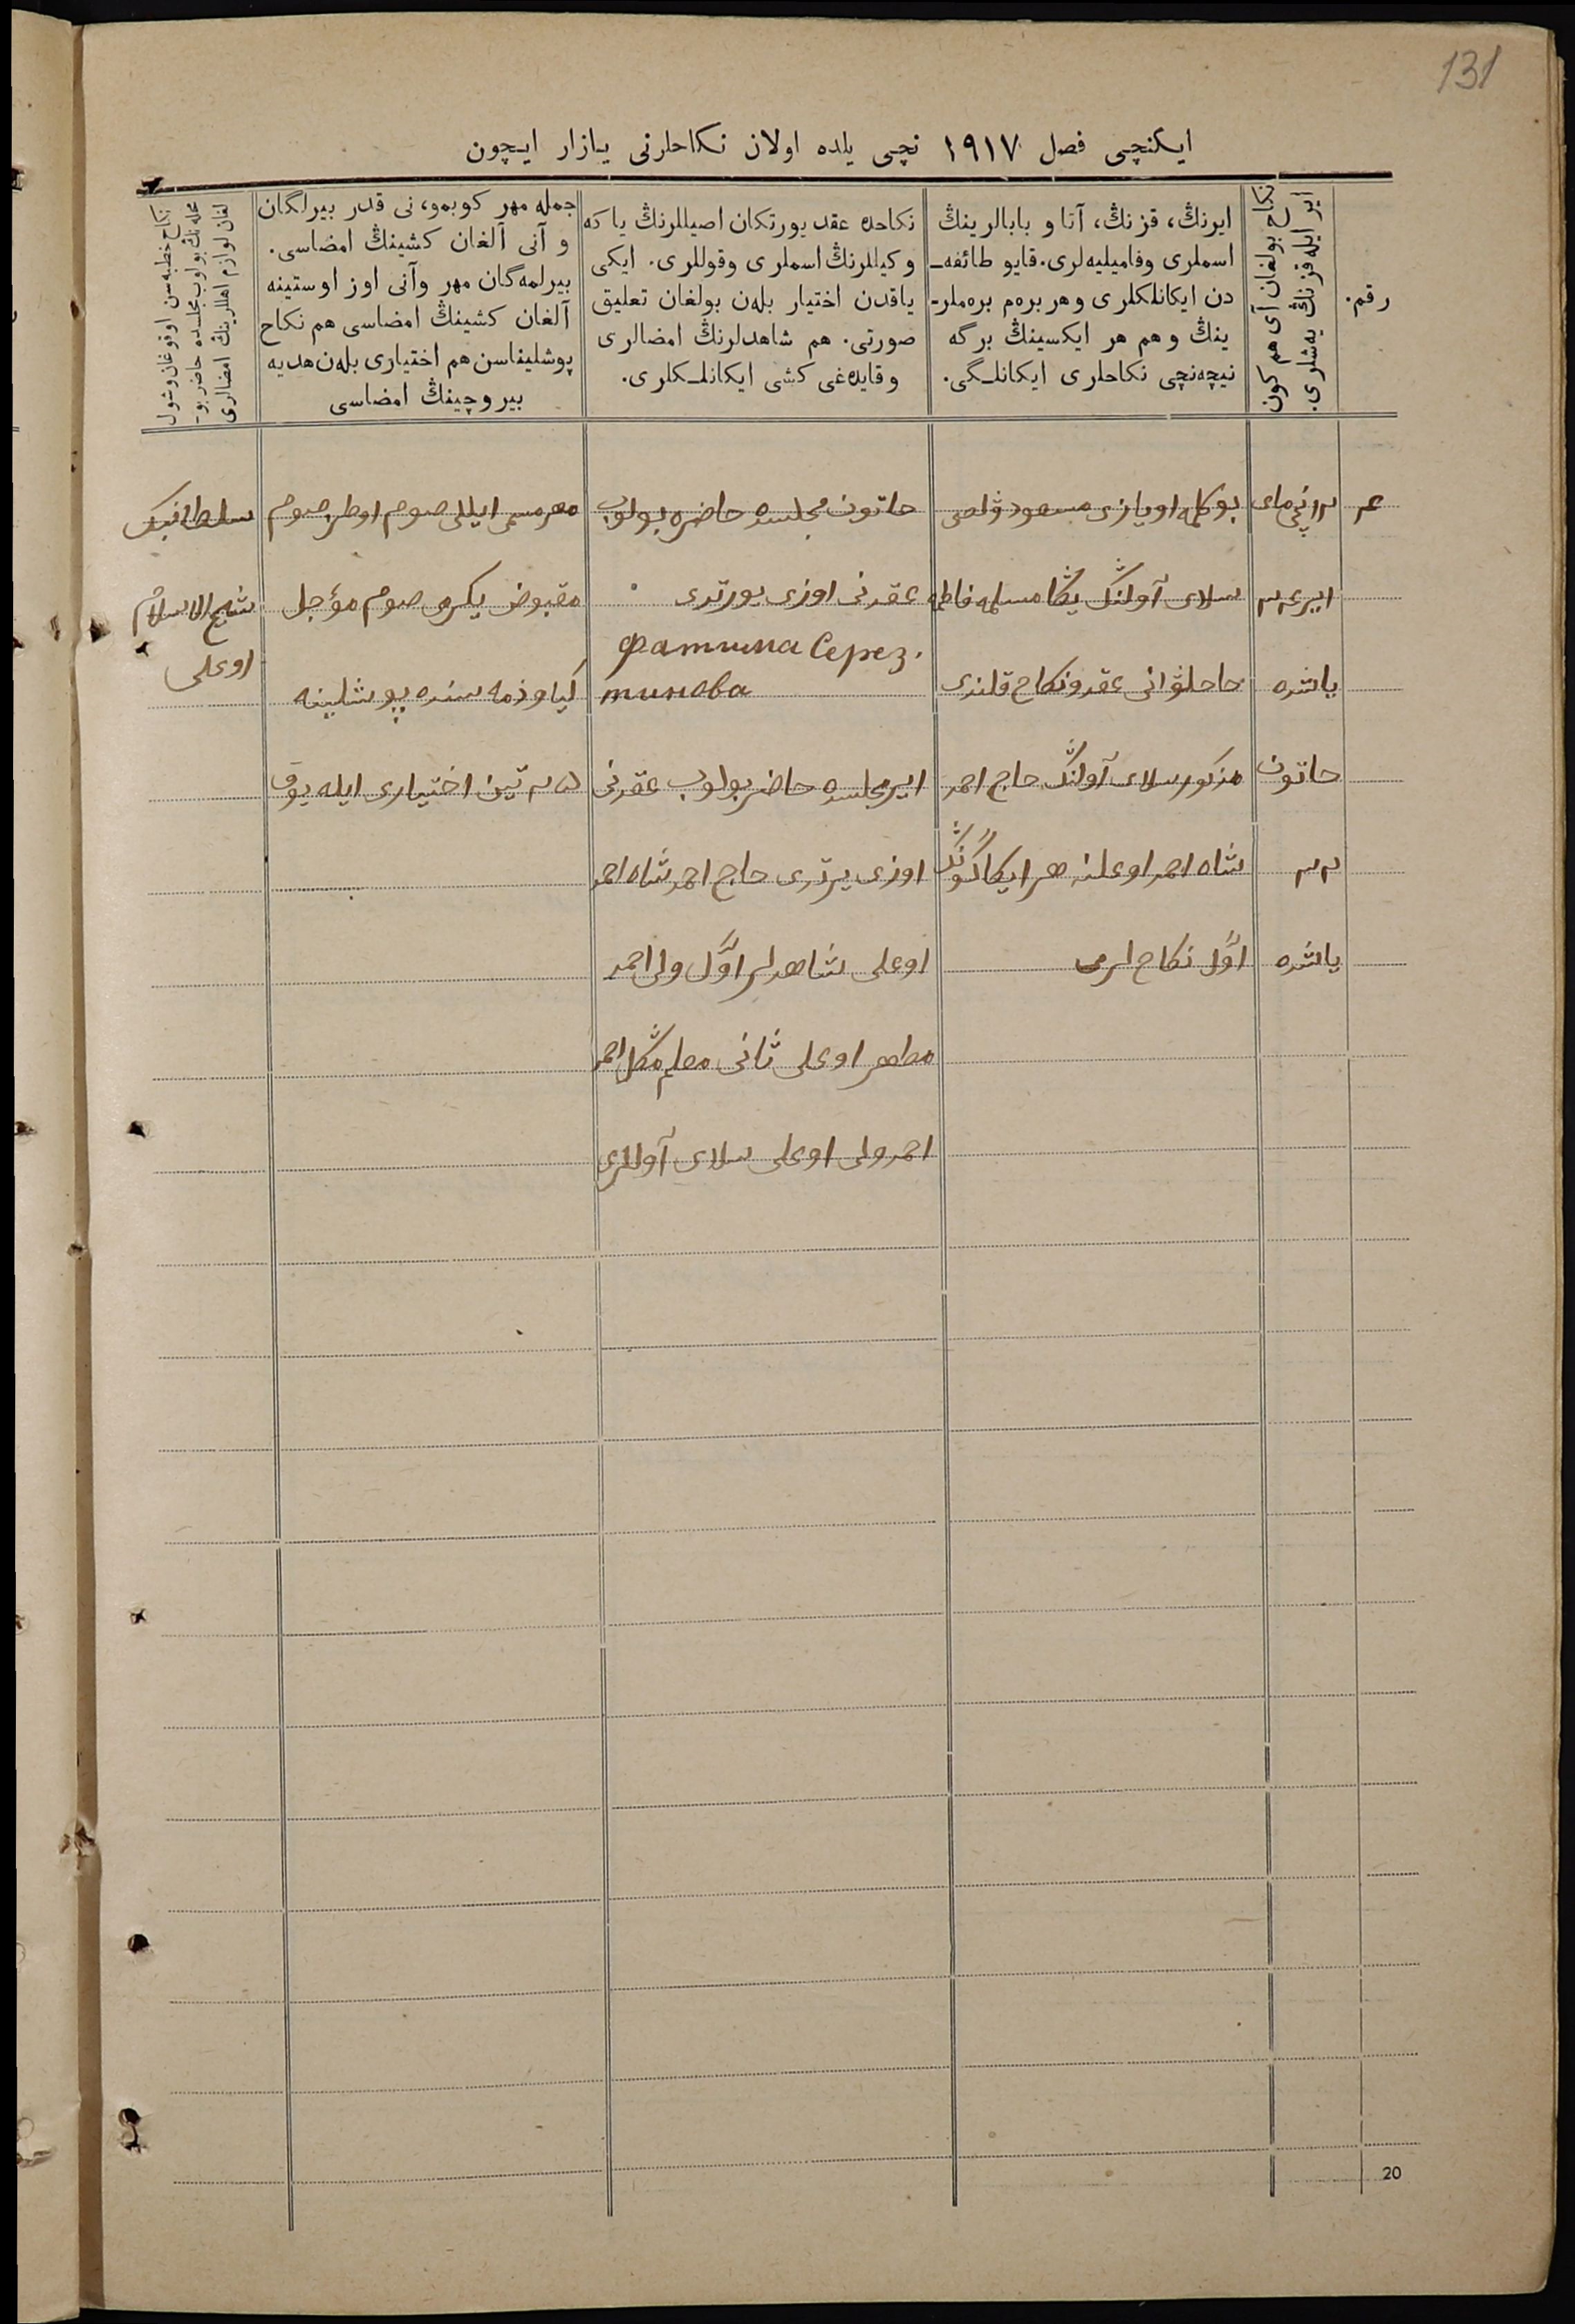 131
ایكنچی فصل ١٩١٧ نچی یلده اولان نكاحلرنی یازار ایچون
رقم.
نكاح بولغان آی هم كون
ایر ایله قزنڭ یه‌شلری.
ایرنڭ، قزنڭ، آتا و بابالرینڭ
اسملری وفامیلیه‌لری. قایو طائفه‌ـ
دن ایكانلكلری وهر بره‌م بره‌ملرـ
ینڭ وهم هر ایكسینڭ برگه
نیچه‌نچی نكاحلری ایكانلـگی.
نكاحده عقد یورتكان اصیللرنڭ یا كه
وكیللرنڭ اسملری وقوللری. ایكی
یاقدن اختیار بله‌ن بولغان تعلیق
صورتی. هم شاهدلرنڭ امضالری
وقایده‌غی كشی ایكانلـكلری.
جمله مهر كوبمو، نی قدر بیرلگان
و آنی آلغان كشینڭ امضاسی.
بیرلمه‌گان مهر وآنی اوز اوستینه
آلغان كشینڭ امضاسی هم نكاح
پوشلیناسن هم اختیاری بله‌ن هدیه
بیروچینڭ امضاسی
نكاح خطبه‌سن اوقوغان وشول
محله‌نڭ بولوب مجلسده حاضر بوـ
لغان لوازم اهاللرینڭ امضالری
نچی مای
ایر
یاشده
خاتون
٢٢
یاشده
بوكلمه اویازی مسعود ولصی
سلای آولنڭ مسلمه فاطمه
عقد ونكاح قلندی
مذكور سلای آولنڭ حاج احمد
شاه احمد اوغلنه هر
اوّل نكاح لری
خاتون مجلسده حاضره بولوب
عقدنی اوزی یورتدی
Фатима Серез.
тинова
ایر مجلسده حاضر بولوب عقدنی
اوزی یرتدی حاج احمد شاه احمد
اوغلی شاهدلر اوّل ولی احمد
مطهر اوغلی ثانی معلم احمد
احمدولی اوغلی سلای آوللری
مهر مسمی ایللی صوم اوطز صوم
مقبوض یكرمی صوم مؤجل
كیاو ذمه سنده پوشلینه
٢٥ تین اختیاری ایله یوق
سلطانبك
شیخ الاسلام
اوغلی
20